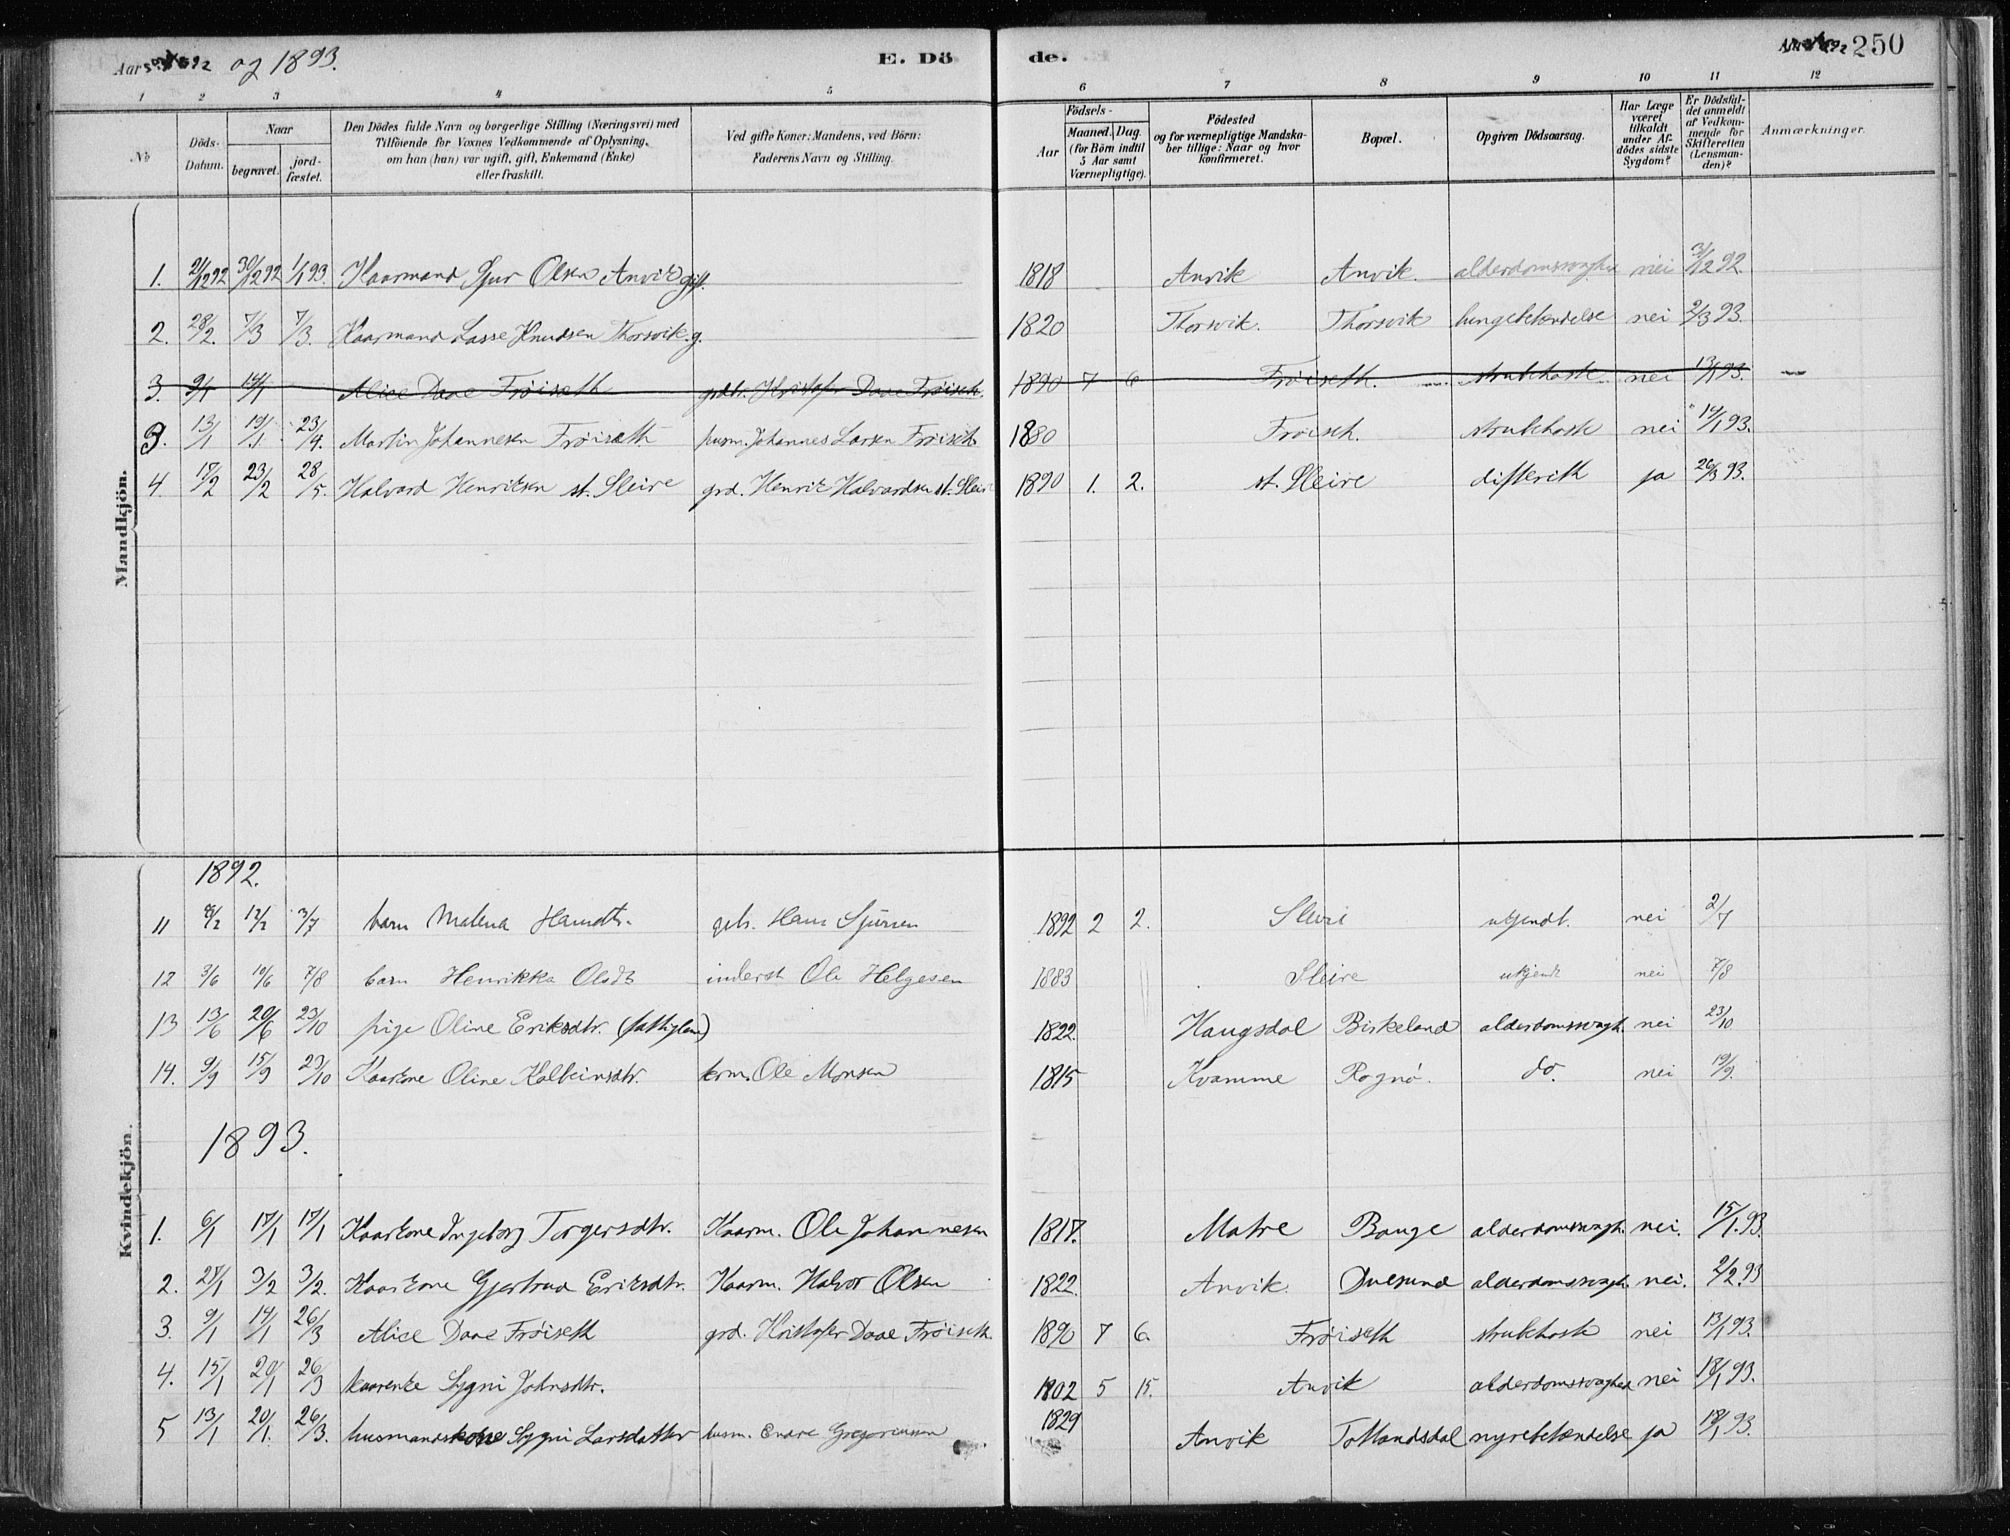 og 1893.
E. Dö de.
250
1 2 3 4 5 6 7 8 9 10 11 12
No
Döds-Datum.
Naar begravet. jord-fæstet.
Den Dödes fulde Navn og borgerlige Stilling (Næringsvei) med Tilföiende for Voxnes Vedkommende af Oplysning, om han (hun) var ugift, gift, Enkemand (Enke) eller fraskilt.
Ved gifte Koner: Mandens, ved Börn: Faderens Navn og Stilling.
Födsels- Aar Maaned. Dag. (for Börn indtil 5 Aar samt Værnepligtige).
Födested og for værnepligtige Mandska-ber tillige: Naar og hvor konfirmeret.
Bopæl.
Opgiven Dödsaarsag.
Har Læge været tilkaldt under Af-dödes sidste Sygdom?
Er Dödsfal-det anmeldt af Vedkom-mende for Skifteretten (Lensman-den)?
Anmærkninger.
Mandkjön.
1. 21/12 92 30/12 92 1/1 93. Kaarmand Sjur Olsen Anvik gift. 1818 Anvik Anvik. alderdomssvaghed nei 31/12 92
2. 28/2. 7/3 7/3. Kaarmand Lasse Knudsen Thorsvik. g. 1820 Thorsvik. Thorsvik lungebetændelse nei 2/3 93.
3. 9/1 14/1 Alice Daae Frøiseth grdbr. Kristofer Daae Frøiseth. 1890 7 6 Frøiseth. strubehoste nei 13/1 93.
3. 13/1 19/1. 23/4. Martin Johannesen Frøiseth husm. Johannes Larsen Frøiseth 1880 Frøiseth. strubehoste nei 14/1 93.
4. 18/2 23/2 28/5. Halvard Henriksen st. Sleire grd. Henrik Halvardsen st. Sleire 1890 1. 2. st. Sleire difterith ja 26/3 93.
Kvindekjön.
1892.
11 8/2 12/2 3/7 barn Malena Hansdtr. gbr. Hans Sjursen 1892 2 2. Sleire ukjendt. nei 2/7
12 3/6 10/6 7/8 barn Henrikka Olsdt inderst Ole Helgesen 1883 Sleire ukjendt nei 7/8
13 13/6 20/6 23/10 pige Oline Eriksdtr. (fattiglem) 1822. Haugsdal Birkeland alderdomssvagh. nei 23/10
14. 9/9 15/9 23/10 Kaarkone Oline Kolbeinsdtr. krm. Ole Monsen 1815 Kvamme Rognø. do. nei 19/9.
1893.
1. 6/1 17/1 17/1 Kaarkone Ingeborg Torgersdtr. Kaarm. Ole Johannesen 1817. Matre Bauge alderdomssvagh. nei. 15/1. 93.
2. 28/1 3/2 3/2. Kaarkone Gjertrud Eriksdtr. Kaarm. Halvor Olsen 1822. Anvik. Duesund alderdomssvagh. nei. 2/2. 93
3. 9/1 14/1 26/3 Alice Daae Frøiseth grd. Kristofer Daae Frøiseth. 1890 7 6. Frøiseth strubehoste nei 13/1 93.
4. 15/1 20/1 26/3 kaarenke Sygni Johnsdtr. 1802 5 15. Anvik alderdomssvaghed nei 18/1 93.
5 13/1 20/1. 26/3. husmandskone Sygni Larsdatter husm. Endre Gregoriussen 1829 Anvik Totlandsdal nyrebetændelse ja 18/1 93.